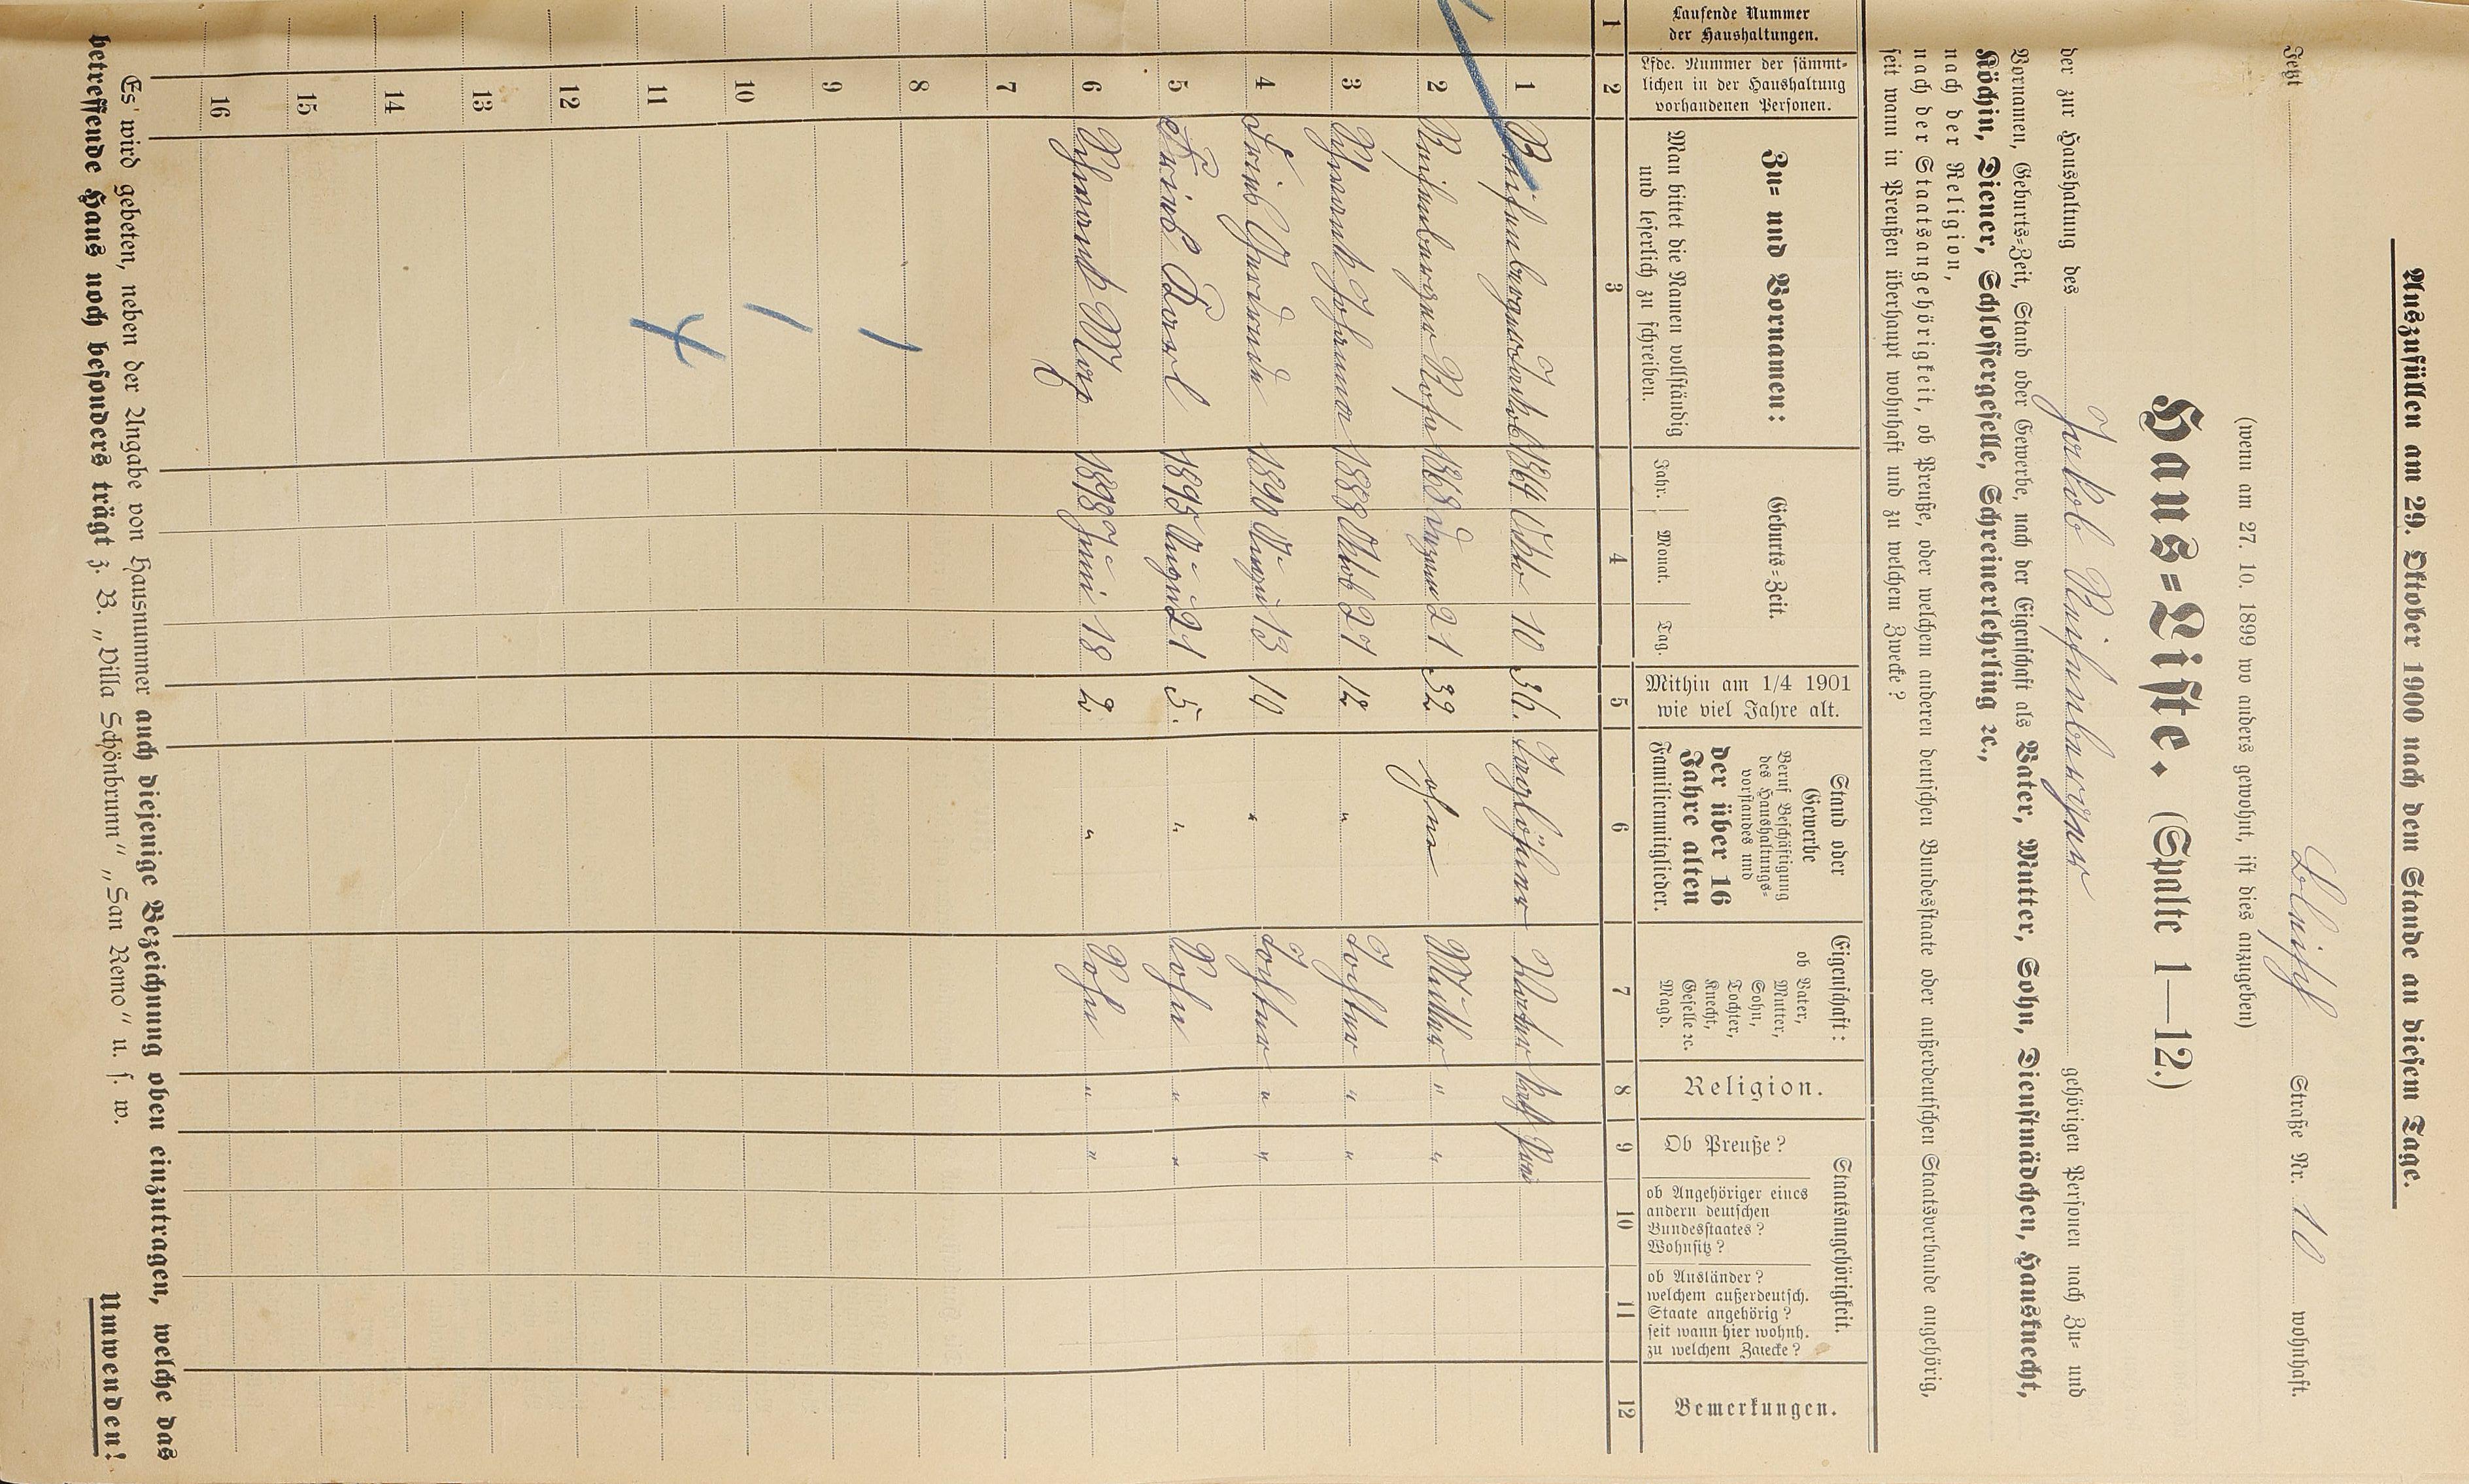 Auszufüllen am 29. Oktober 1900 nach dem Stande an diesem Tage.
Jetzt Straße Nr. 10 wohnhaft.
(wenn am 27. 10. 1899 wo anders gewohnt, ist dies anzugeben)
Haus=Liste. (Spalte 1—12.)
der zur Haushaltung des Jakob gehörigen Personen nach Zu= und
Vornamen, Geburts=Zeit, Stand oder Gewerbe, nach der Eigenschaft als Vater, Mutter, Sohn, Dienstmädchen, Hausknecht,
Köchin, Diener, Schlossergeselle, Schreinerlehrling ꝛc.,
nach der Religion,
nach der Staatsangehörigkeit, ob Preuße, oder welchem anderen deutschen Bundesstaate oder außerdeutschen Staatsverbande angehörig,
seit wann in Preußen überhaupt wohnhaft und zu welchem Zwecke?
Laufende Nummer
der Haushaltungen.
Lfde. Nummer der sämmt-
lichen in der Haushaltung
vorhandenen Personen.
Zu= und Vornamen:
Man bittet die Namen vollständig
und leserlich zu schreiben.
Geburts=Zeit.
Jahr. Monat. Tag.
Mithin am 1/4 1901
wie viel Jahre alt.
Stand oder
Gewerbe
Beruf Beschäftigung
des Haushaltungs-
vorstandes und
der über 16
Jahre alten
Familienmitglieder.
Eigenschaft:
ob Vater,
Mutter,
Sohn,
Tochter,
Knecht,
Geselle ꝛc.
Magd.
Religion.
Staatsangehörigkeit.
Ob Preuße?
ob Angehöriger eines
andern deutschen
Bundesstaates?
Wohnsitz?
ob Ausländer?
welchem außerdeutsch.
Staate angehörig?
seit wann hier wohnh.
zu welchem Zwecke?
Bemerkungen.
1 2 3 4 5 6 7 8 9 10 11 12
1 Jakob 1864 Okto 10 36. Taglöhner Vater kath
2 Rosa 1868 21 32 ohne Mutter " "
3 Johanna 1888 Oktob 27 12 " Tochter " "
4 1890 13 10 " Tochter " "
5 Karl 1895 August 21 5. " Sohn " "
6 Max 1898 Juni 18 2 " Sohn " "
7
8
9
10
11
12
13
14
15
16
Es wird gebeten, neben der Angabe von Hausnummer auch diejenige Bezeichnung oben einzutragen, welche das
betreffende Haus noch besonders trägt z. B. „Villa Schönbrunn" „San Remo" u. s. w.
Umwenden!